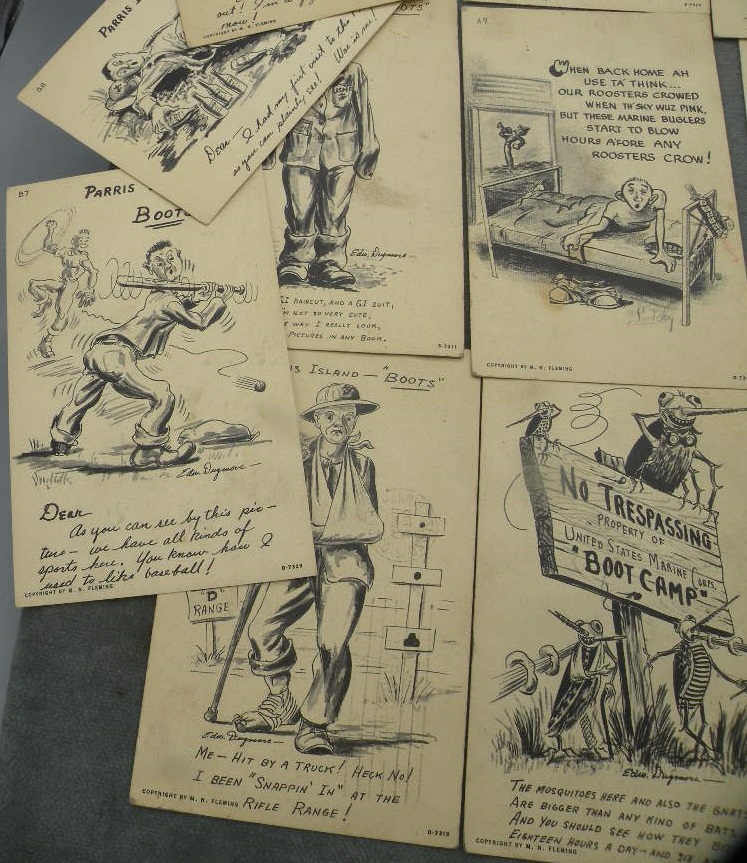 58
PARRIS
Dear — I had my first visit to the
as you can plainly see! Woe is me!
out! I'm
now.
COPYRIGHT BY M. N. FLEMING
OTS"
Edw. Dugmore
GI HAIRCUT, AND A GI SUIT,
NOT SO VERY CUTE,
WAY I REALLY LOOK,
PICTURES IN ANY BOOK.
D-7311
A7
WHEN BACK HOME AH
USE TA' THINK...
OUR ROOSTERS CROWED
WHEN TH' SKY WUZ PINK,
BUT THESE MARINE BUGLERS
START TO BLOW
HOURS AFORE ANY
ROOSTERS CROW!
COPYRIGHT BY M. N. FLEMING
57
PARRIS
BOOTS
Edw. Dugmore
DEAR
As you can see by this pic-
ture — we have all kinds of
sports here. You know how I
used to like baseball!
COPYRIGHT BY M. N. FLEMING
D-7319
IS ISLAND — "BOOTS"
"D"
RANGE
Edw. Dugmore
ME — HIT BY A TRUCK! HECK NO!
I BEEN "SNAPPIN' IN" AT THE
RIFLE RANGE!
COPYRIGHT BY M. N. FLEMING
D-7315
NO TRESPASSING
PROPERTY OF
UNITED STATES MARINE CORPS.
"BOOT CAMP"
Edw. Dugmore
THE MOSQUITOES HERE AND ALSO THE GNAT
ARE BIGGER THAN ANY KIND OF BATS
AND YOU SHOULD SEE HOW THEY
EIGHTEEN HOURS A DAY — AND
COPYRIGHT BY M. N. FLEMING